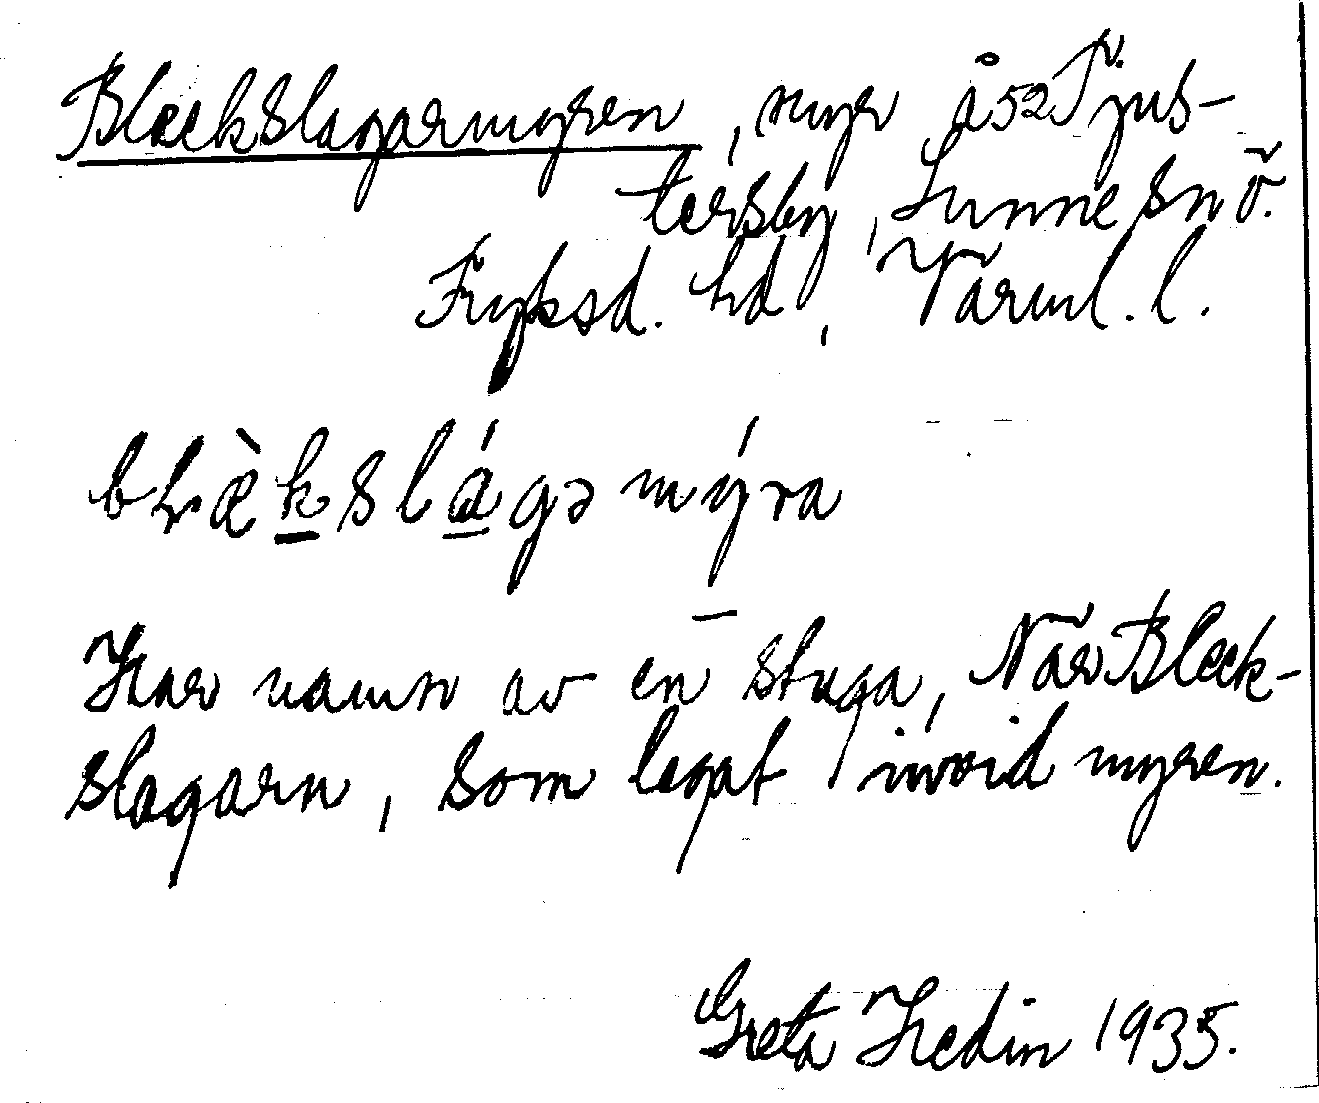 Bleckslagarmyren, myr å 52 Tjus-
tersby, Sunne sn ö.
Fryksd. hd, Värml. l.
blæ̀kslágəmýra
Har namn av en stuga, När Bleck-
slagarn, som legat invid myren.
Greta Hedin 1935.